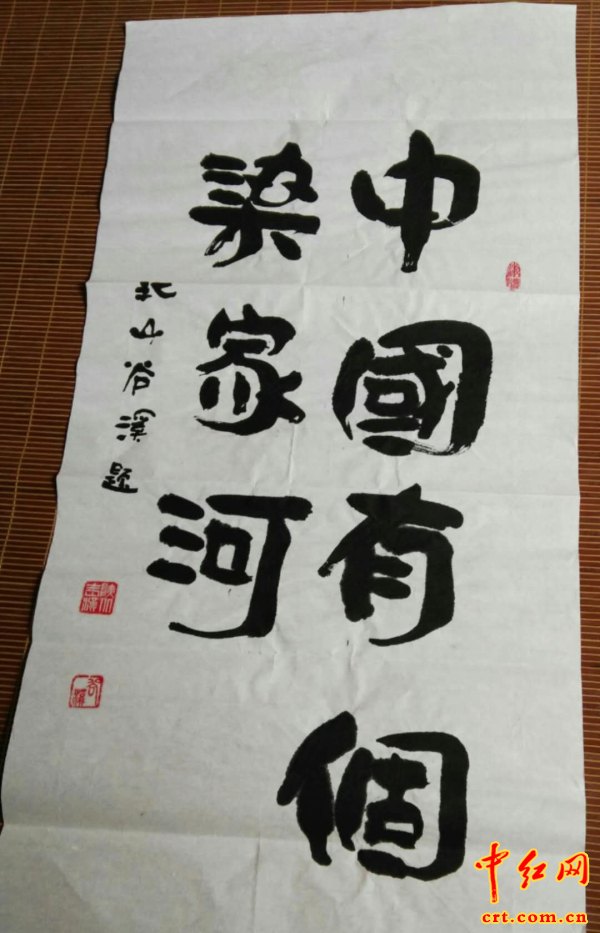 中國有個
梁家河
北山谷溪题
中红网
crt.com.cn